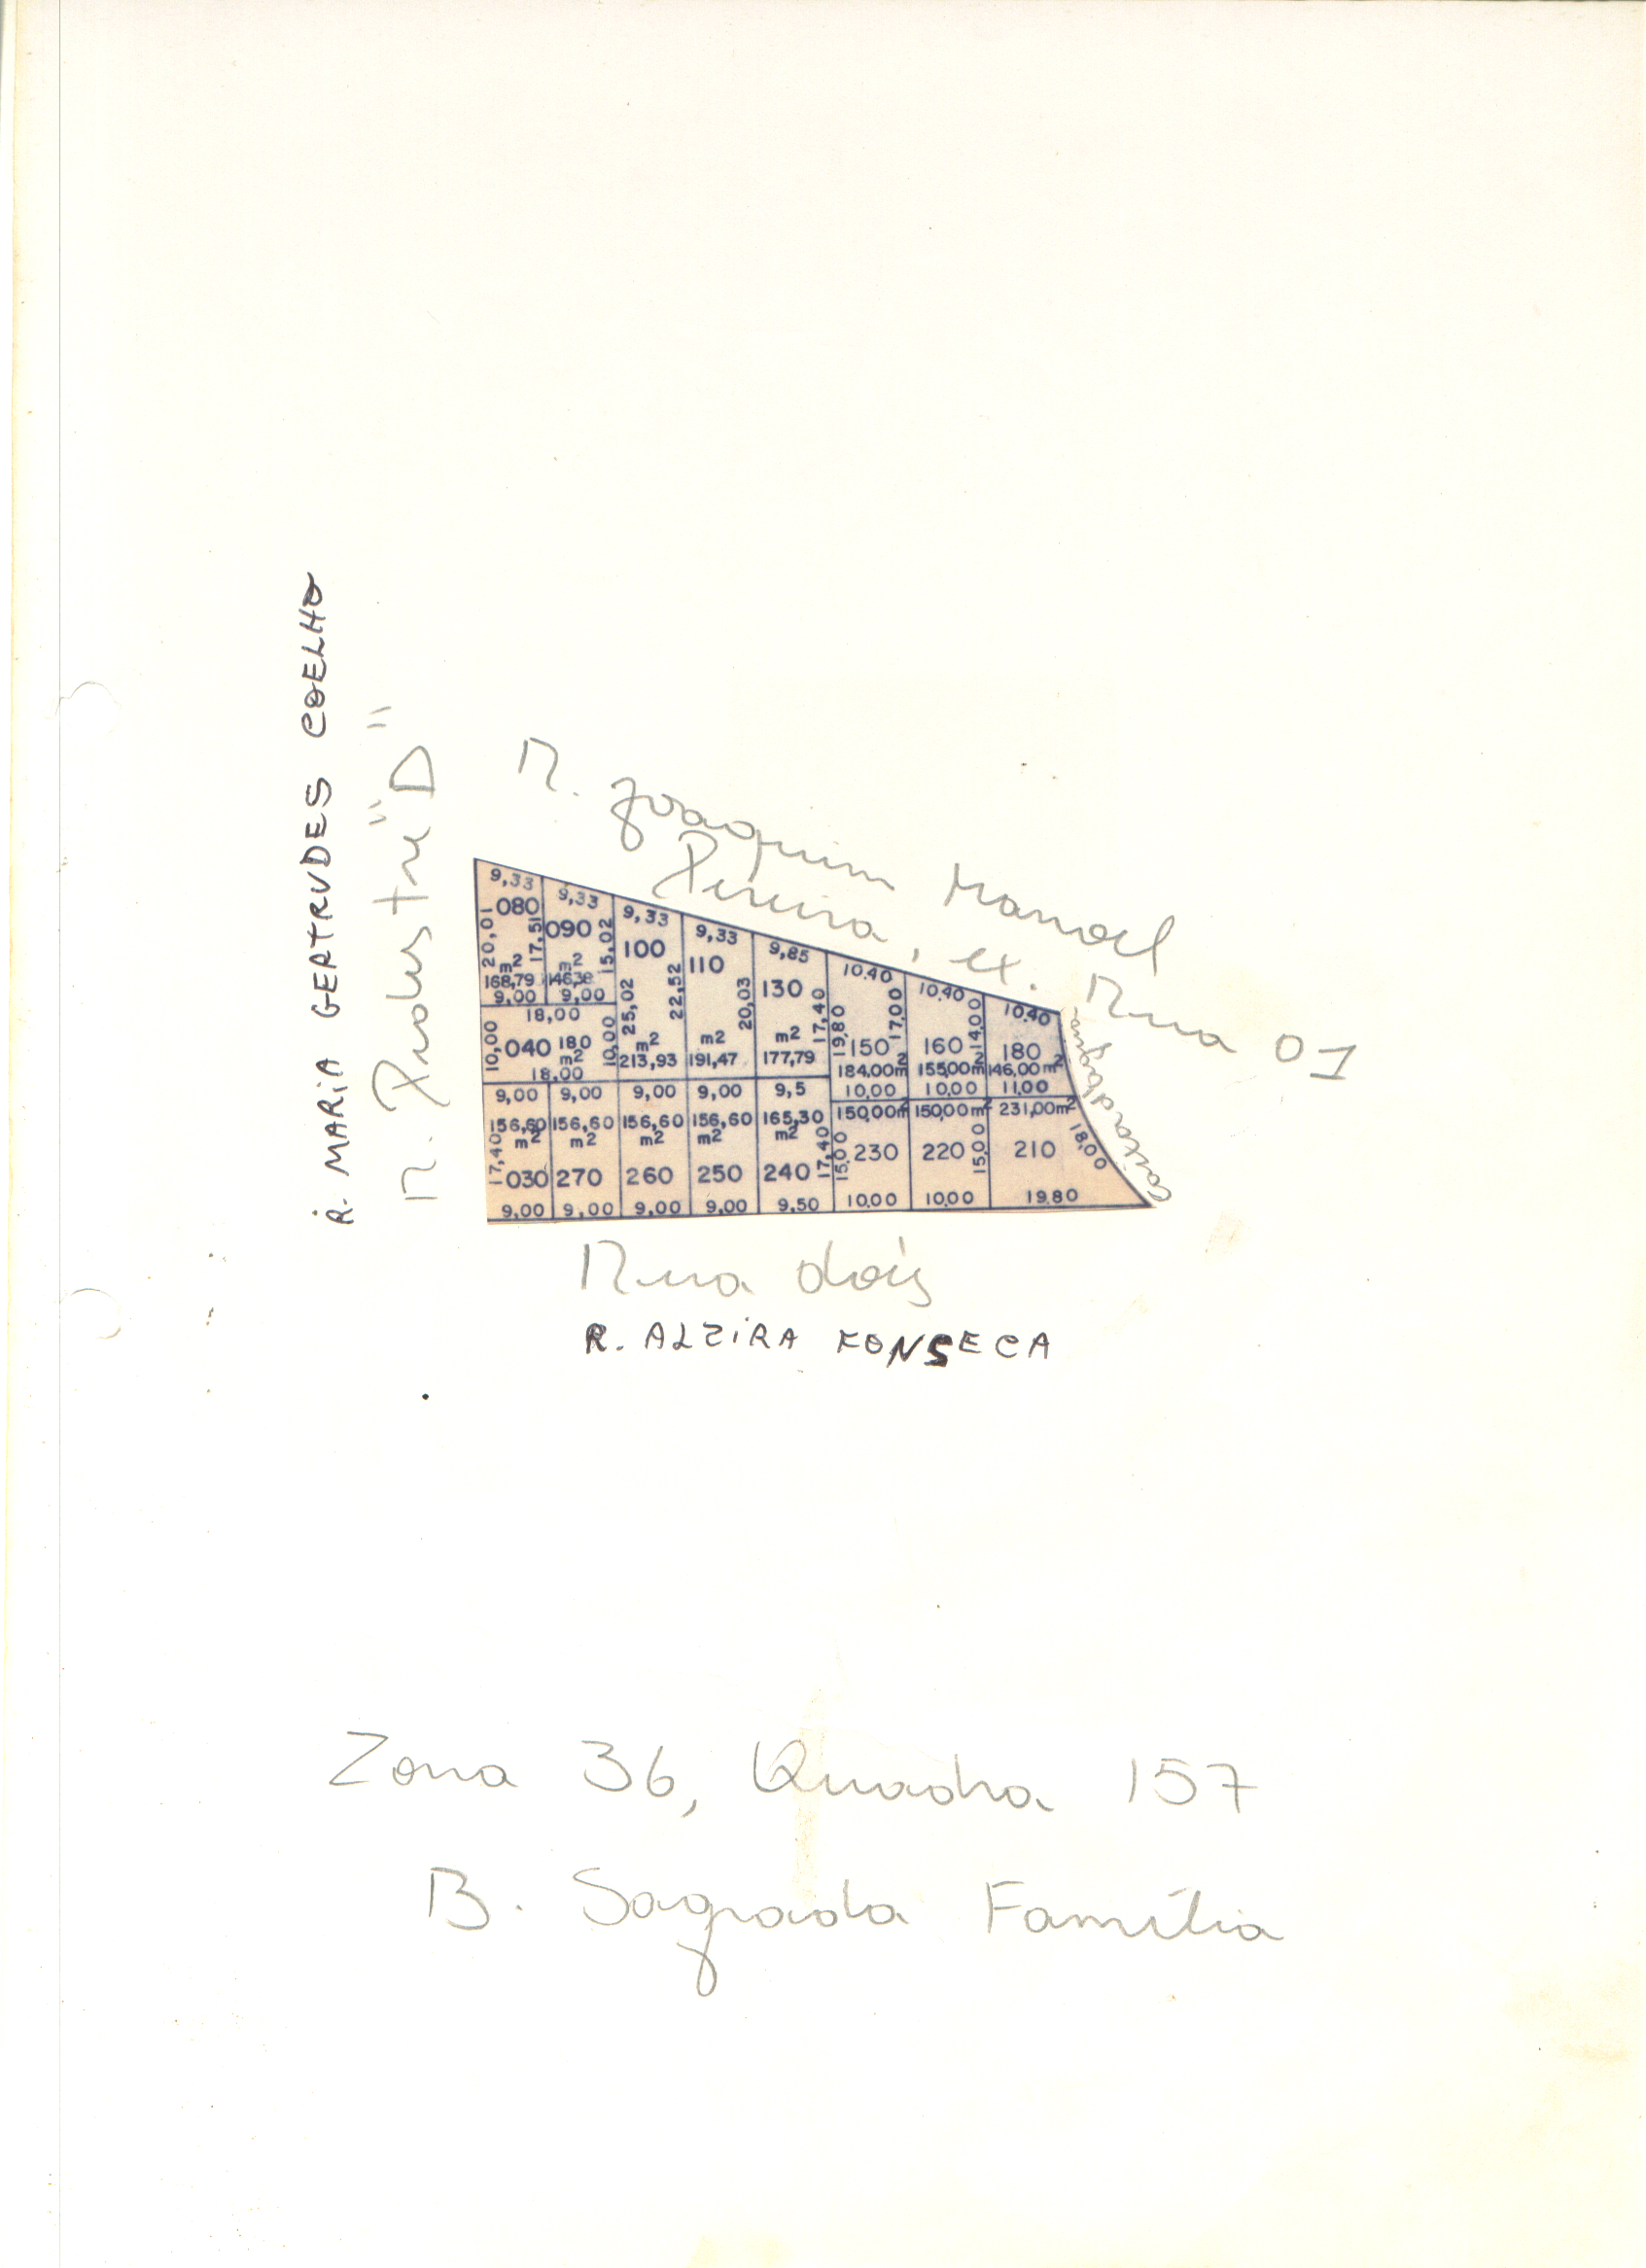 R. MARIA GERTRUDES COELHO
R. Pedestre "D"
R. Joaquim Manoel
Pereira, ex. Rua 01
9,33
080
20,01
17,51
m2
168,79
9,00
9,33
090
15,02
m2
9,00
9,33
100
25,02
22,52
m2
213,93
9,33
110
20,03
m2
191,47
9,85
130
17,40
m2
177,79
10.40
150
19,80
17,00
184,00m2
10,00
10,40
160
14,00
155,00m2
10,00
10,40
180
146,00m2
11,00
18,00
10,00
040
180
m2
10,00
18,00
9,00
156,60
m2
17,40
030
9,00
9,00
156,60
m2
270
9,00
9,00
156,60
m2
260
9,00
9,00
156,60
m2
250
9,00
9,5
165,30
m2
240
17,40
9,50
150,00m2
15,00
230
10,00
150,00m2
220
15,00
10,00
231,00m2
210
18,00
19,80
Rua dois
R. ALZIRA FONSECA
Zona 36, Quadra 157
B. Sagrada Família